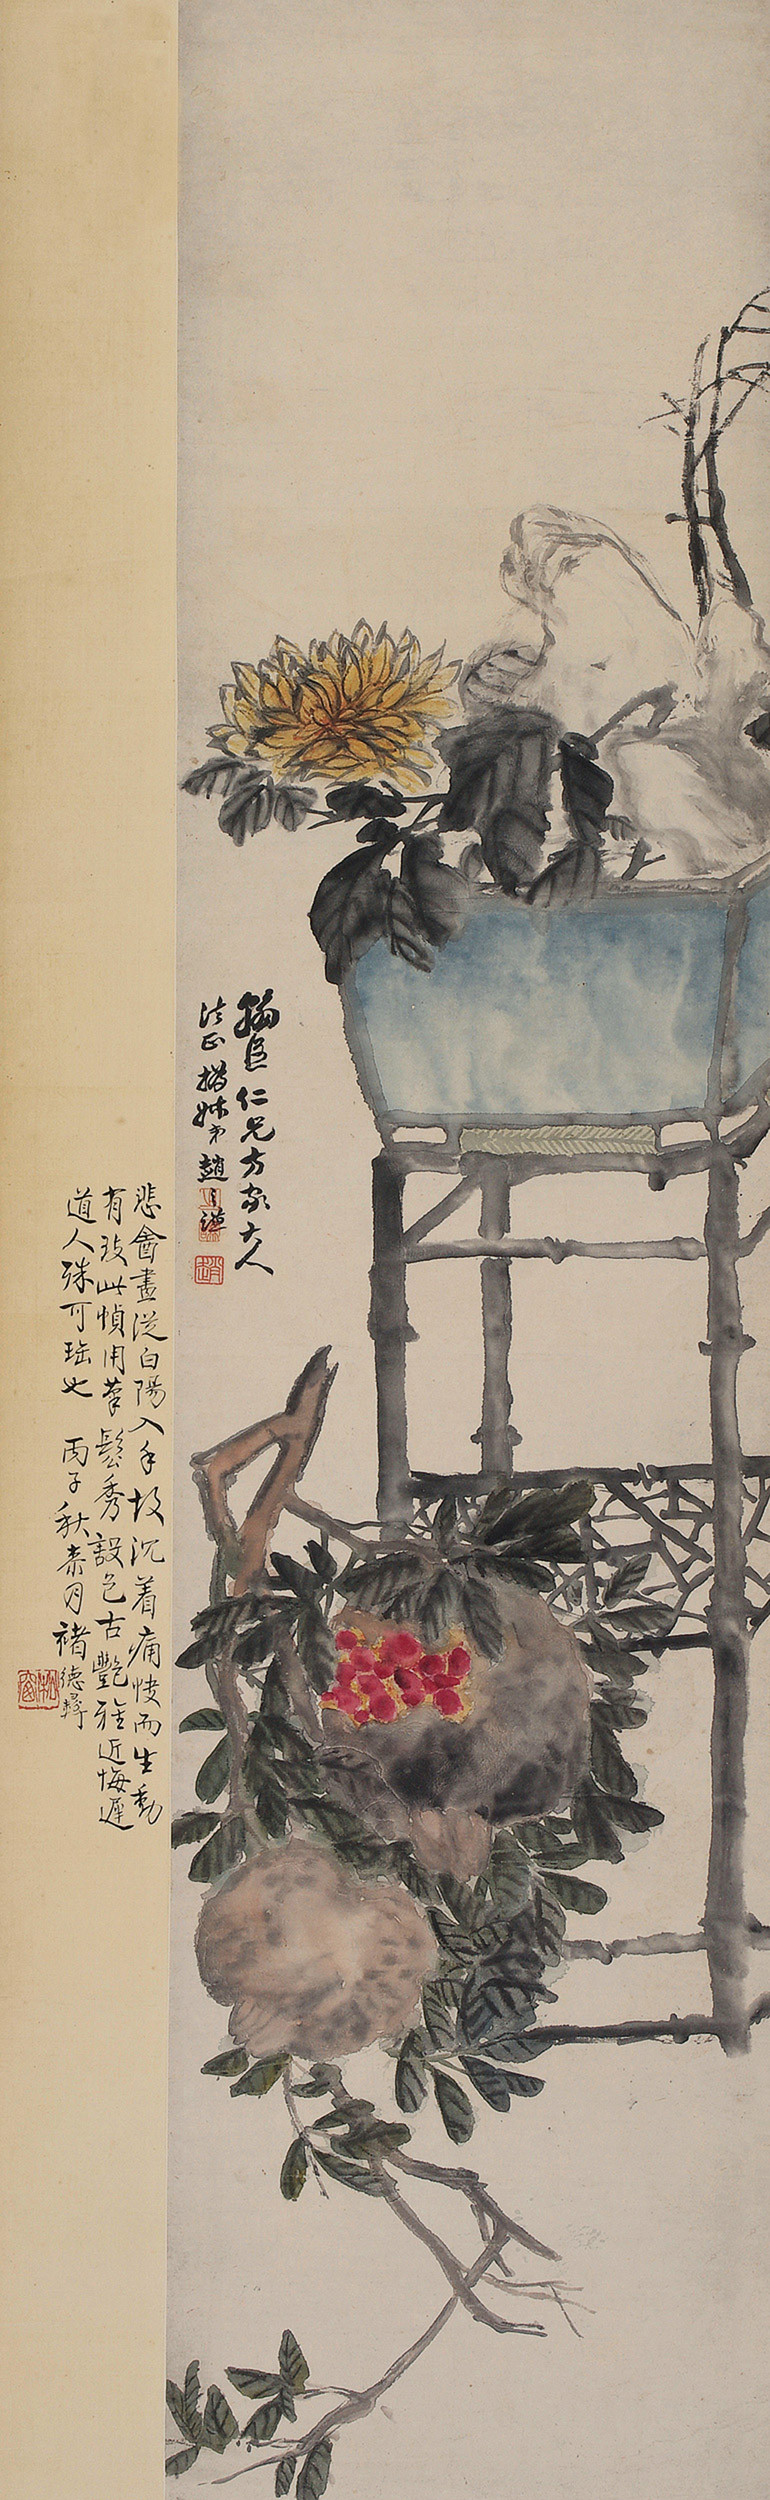 仁兄方家大人
法正撝叔弟趙之謙
悲盦畫從白陽入手故沉着痛快而生動
有致此幀用筆鬆秀設色古艷雅近悔遲
道人殊可珤也 丙子秋 褚德彝